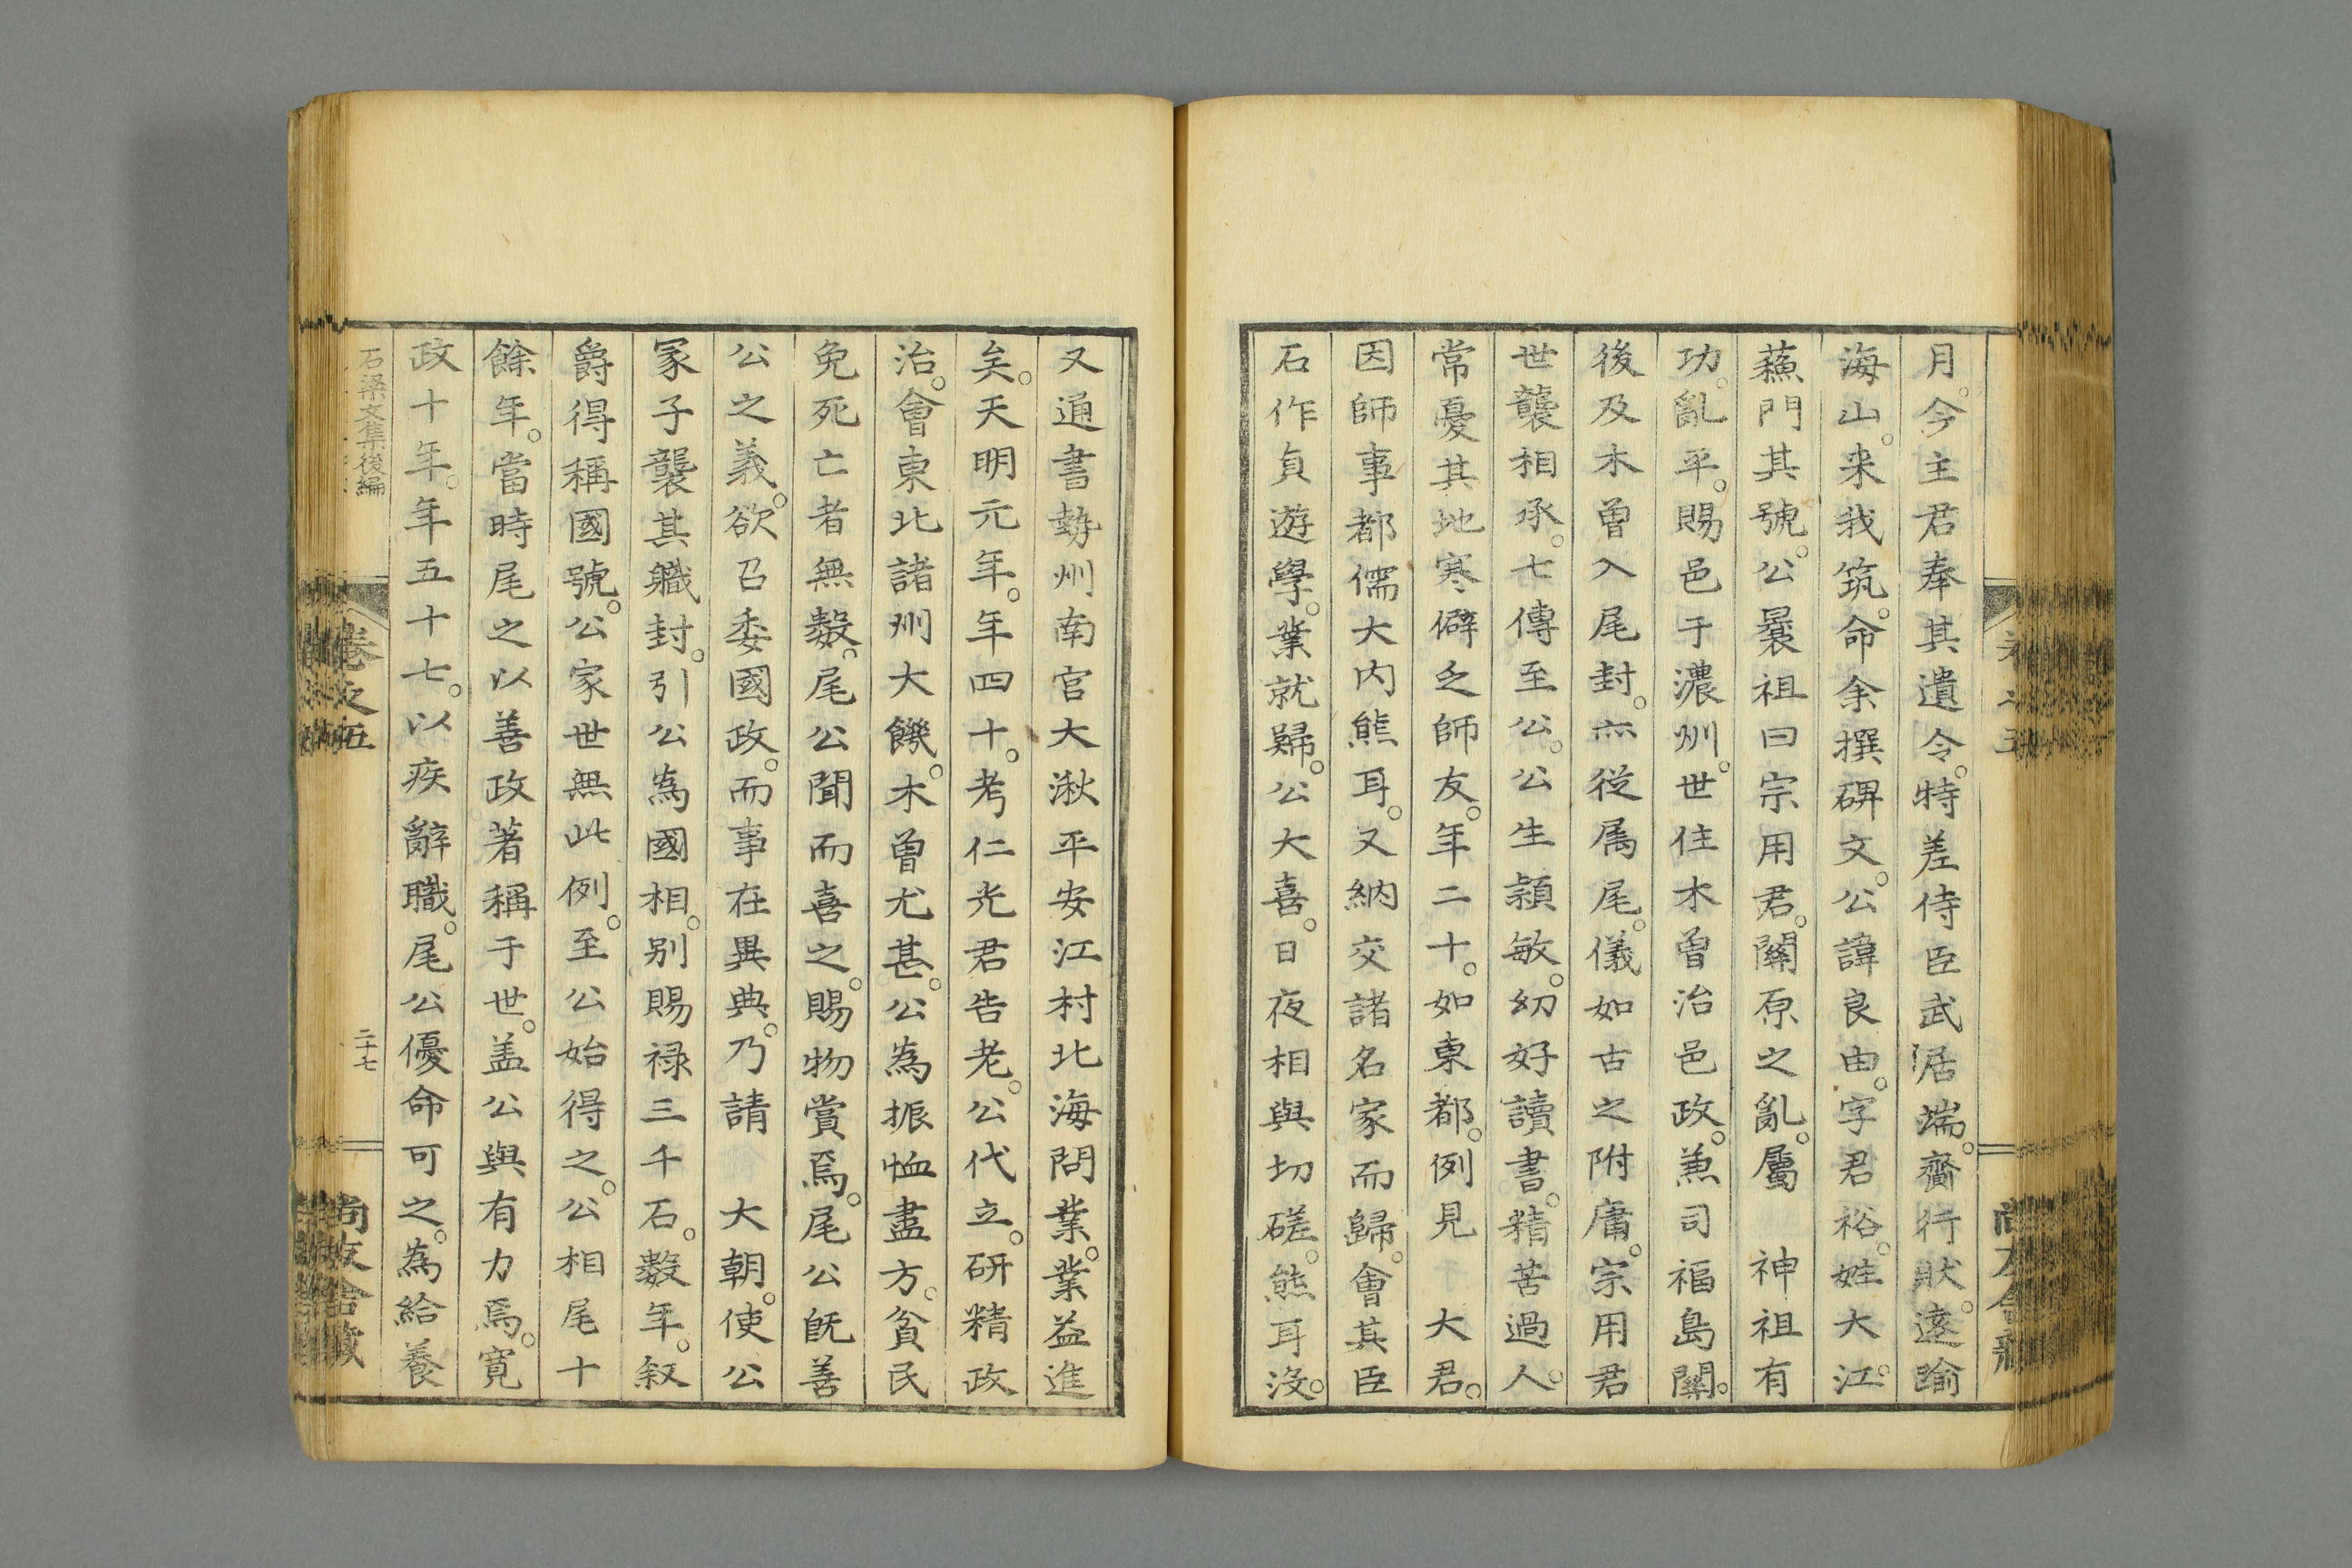 月。今主君奉其遺令。特差侍臣武居端。齎行狀。遠踰
海山。来我筑。命余撰碑文。公諱良由。字君裕。姓大江。
蘓門其號。公曩祖曰宗用君。關原之亂。屬　神祖有
功。亂平。賜邑于濃州。世住木曽治邑政。兼司福島關。
後及木曽入尾封。亦從属尾。儀如古之附庸。宗用君
世襲相承。七傳至公。公生穎敏。幼好讀書。精苦過人。
常憂其地寒僻乏師友。年二十。如東都。例見　大君。
因師事都儒大内熊耳。又納交諸名家而歸。會其臣
石作貞遊學。業就歸。公大喜。日夜相與切磋。熊耳沒。
又通書勢州南宮大湫平安江村北海問業。業益進
矣。天明元年。年四十。考仁光君告老。公代立。研精政
治。會東北諸州大饑。木曽尤甚。公為振恤盡方。貧民
免死亡者無數。尾公聞而喜之。賜物賞焉。尾公既善
公之義。欲召委國政。而事在異典。乃請　大朝。使公
冢子襲其職封。引公為國相。別賜禄三千石。數年。叙
爵得稱國號。公家世無此例。至公始得之。公相尾十
餘年。當時尾之以善政著稱于世。盖公與有力焉。寛
政十年。年五十七。以疾辭職。尾公優命可之。為給養
石梁文集後編
卷之五
二十七
尚友舍藏